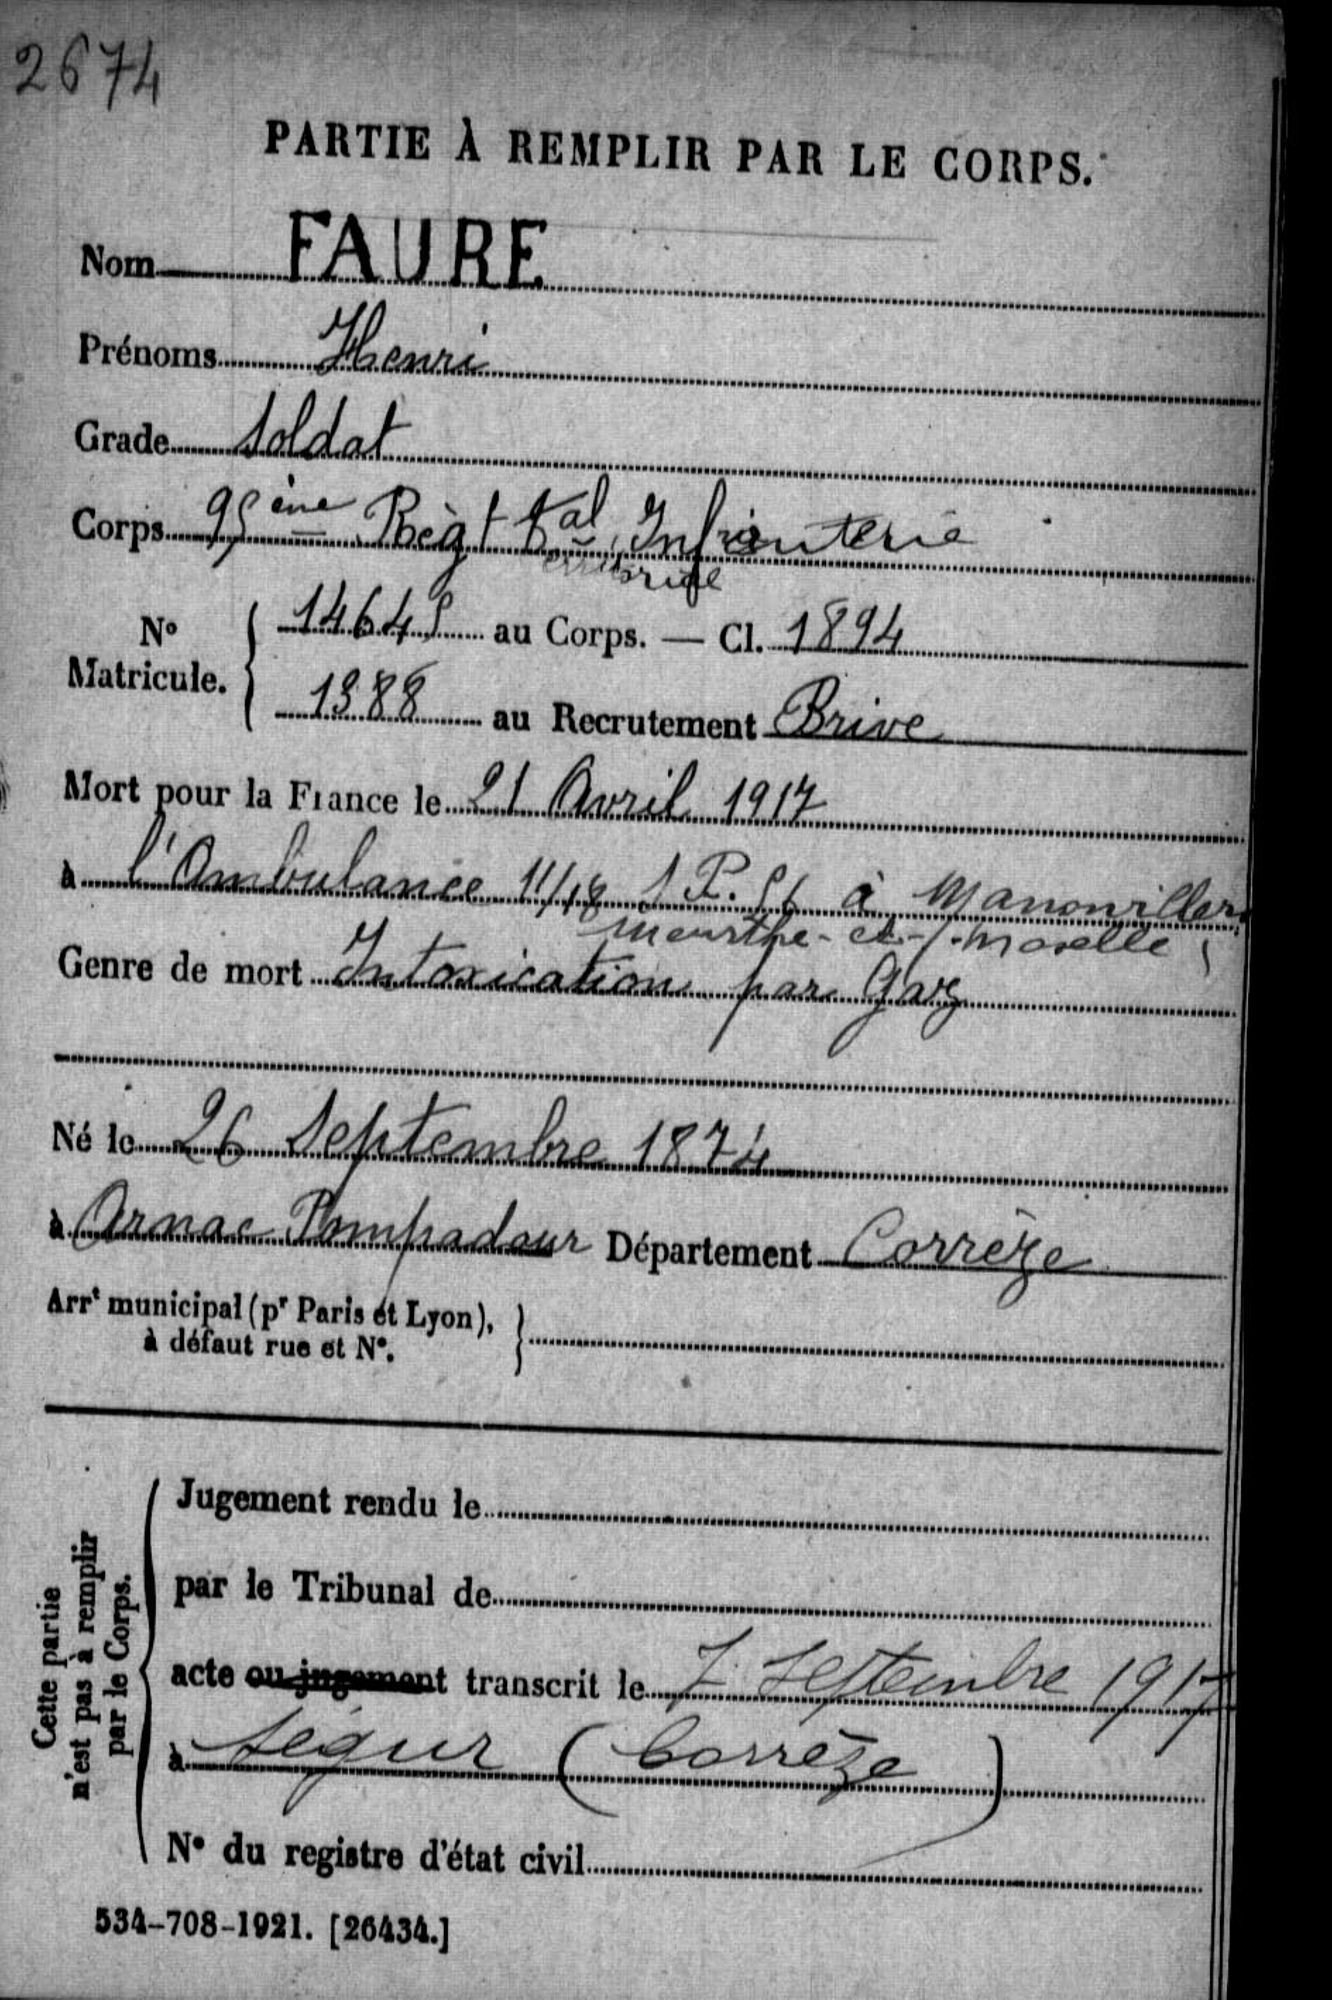 2674
PARTIE À REMPLIR PAR LE CORPS.
Nom FAURE
Prénoms Henri
Grade Soldat
Corps 95ème Règt tal Infanterie
territoriale
No Matricule. 14645 au Corps. — Cl. 1894
1388 au Recrutement Brive
Mort pour la France le 21 Avril 1917
à l'Ambulance 11/18 S.P. 56 à Manonviller
Meurthe-et-Moselle
Genre de mort Intoxication par Gaz
Né le 26 Septembre 1874
à Arnac Pompadour Département Corrèze
Arrt municipal (pr Paris et Lyon),
à défaut rue et N°.
Cette partie
n'est pas à remplir
par le Corps.
Jugement rendu le
par le Tribunal de
acte ou jugement transcrit le 7 Septembre 1917
à Ségur (Corrèze)
N° du registre d'état civil
534-708-1921. [26434.]